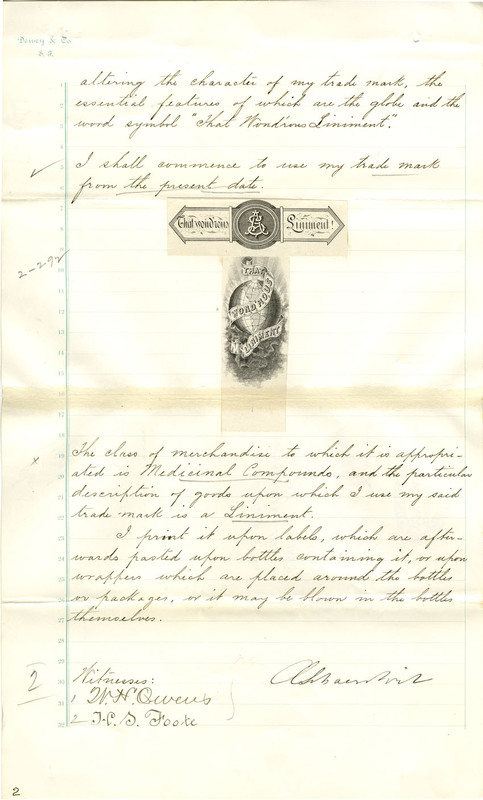 Dewey & Co.
S. F.
altering the character of my trade mark, the
essential features of which are the globe and the
word symbol "That Wond'rous Liniment".
I shall commence to use my trade mark
from the present date.
That wondrous Liniment!
2-292
THAT
WOND'ROUS
LINIMENT
The class of merchandise to which it is appropri-
ated is Medicinal Compounds, and the particular
description of goods upon which I use my said
trade-mark is a Liniment.
I print it upon labels, which are after-
wards pasted upon bottles containing it, or upon
wrappers which are placed around the bottles
or packages, or it may be blown in the bottles
themselves.
2
Witnesses:
1 W. H. Owens
2 Foote
2